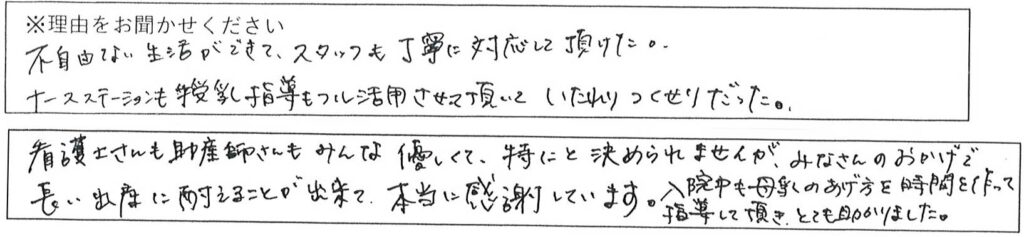 ※理由をお聞かせください
不自由ない生活ができて、スタッフも丁寧に対応して頂けた。
ナースステーションも授乳指導もフル活用させて頂いていたれりつくせりだった。
看護士さんも助産師さんもみんな優しくて、特にと決められませんが、みなさんのおかげで
長い出産に耐えることが出来て、本当に感謝しています。
入院中も母乳のあげ方を時間を作って
指導して頂き、とても助かりました。